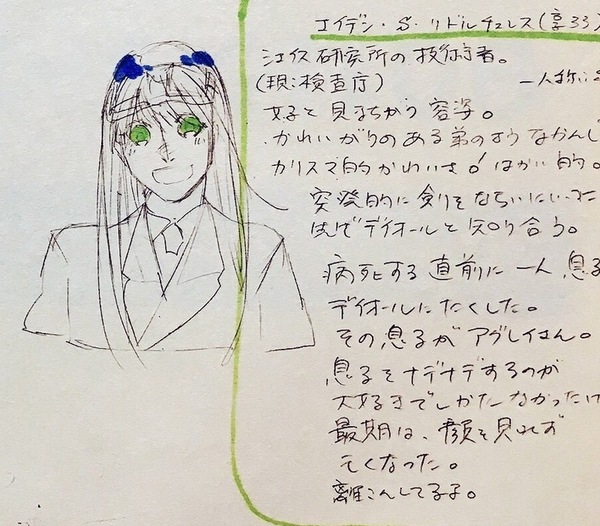 エイデン・S・リドルチェルス(享33)
シェイス研究所の技術者。
(現:検査庁)
一人称:
女子と見まちがう容姿。
かわいがりのある弟のようなかんじ
カリスマ的かわいさ!はかい的。
突発的に剣をならいにいった
先でデイオールと知り合う。
病死する直前に一人、息子
デイオールにたくした。
その息子がアグレイさん。
息子をナデナデするのが
大好きでしかたなかったけ
最期は、顔を見れず
亡くなった。
離こんしてる子。